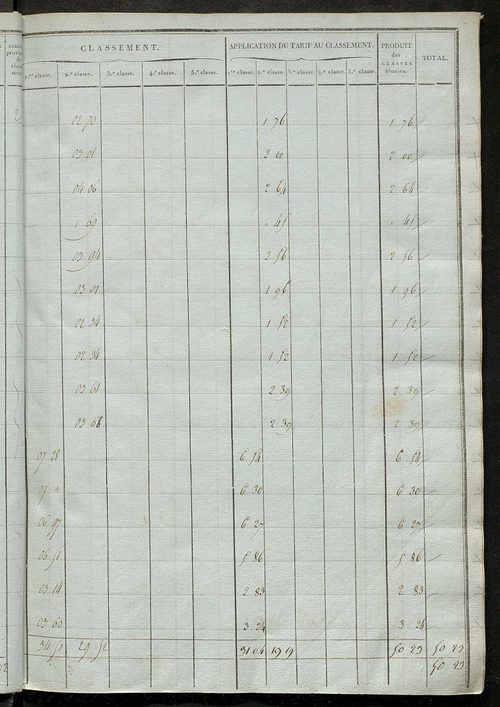 CLASSEMENT. APPLICATION DU TARIF AU CLASSEMENT. PRODUIT des CLASSES réunies. TOTAL.
1.re classe. 2.e classe. 3.e classe. 4.e classe. 5.e classe. 1.re classe. 2.e classe. 3.e classe. 4.e classe. 5.e classe.
02 70 1 76 1 76
03 08 2 00 2 00
04 06 2 64 2 64
" 69 " 45 " 45
03 94 2 56 2 56
03 01 1 96 1 96
02 34 1 52 1 52
02 34 1 52 1 52
03 68 2 39 2 39
03 68 2 39 2 39
07 28 6 54 6 54
07 " 6 30 6 30
06 97 6 27 6 27
06 51 5 86 5 86
03 14 2 83 2 83
03 60 3 24 3 24
34 50 29 52 31 04 19 19 50 23 50 23
50 23